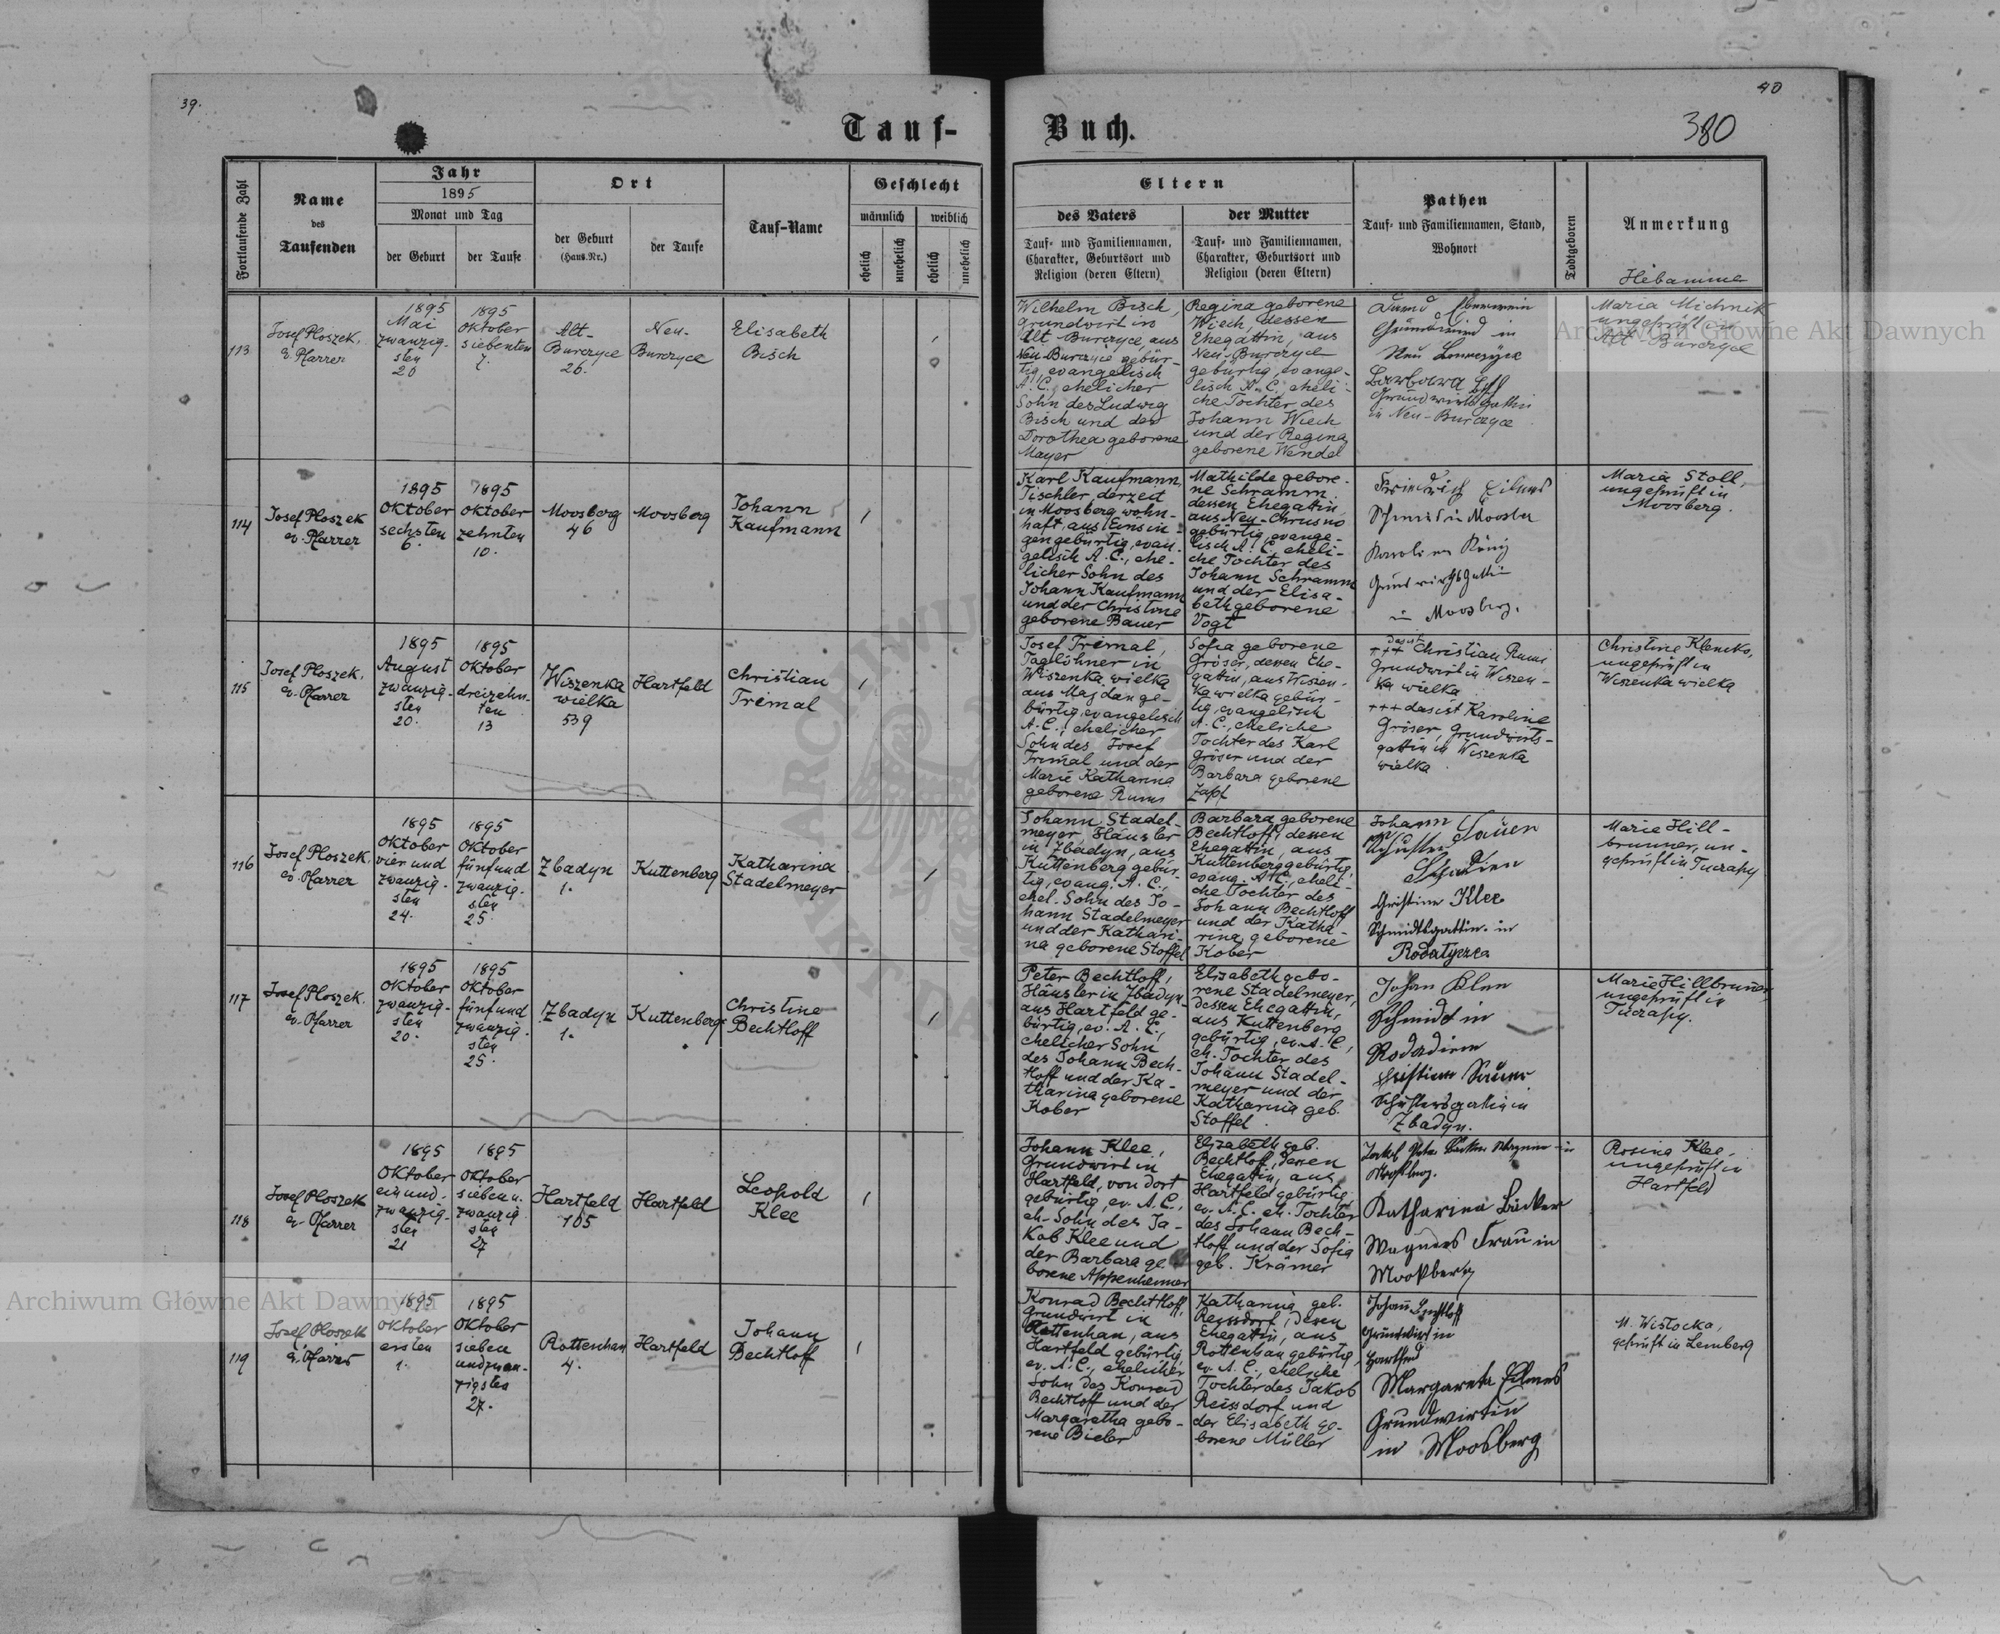 39.
40
380
Tauf-
Buch.
Fortlaufende Zahl
Name
des
Taufenden
Jahr
1895
Monat und Tag
der Geburt
der Taufe
Ort
der Geburt
(Haus-Nr.)
der Taufe
Tauf-Name
Geschlecht
männlich
weiblich
ehelich
unehelich
ehelich
unehelich
Eltern
des Vaters
Tauf- und Familiennamen,
Charakter, Geburtsort und
Religion (deren Eltern)
der Mutter
Tauf- und Familiennamen,
Charakter, Geburtsort und
Religion (deren Eltern)
Pathen
Tauf- und Familiennamen, Stand,
Wohnort
Todtgeboren
Anmerkung
Hebamme
113
Josef Ploszek,
ev. Pfarrer
1895
Mai
zwanzig-
sten
20
1895
Oktober
siebenten
7.
Alt-
Burczyce
26.
Neu-
Burczyce
Elisabeth
Bisch
Wilhelm Bisch,
Grundwirt in
Alt Burczyce, aus
Neu-Burczyce gebür-
tig, evangelisch
A. C., ehelicher
Sohn des Ludwig
Bisch und der
Dorothea geborene
Mayer
Regina geborene
Wiech, dessen
Ehegattin, aus
Neu-Burczyce
gebürtig, evange-
lisch A. C., eheli-
che Tochter des
Johann Wiech
und der Regina
geborene Wendel
Grundwirth in
Neu Burczyce
Barbara Bisch
Grundwirthsgattin
in Neu-Burczyce
Maria Michnik
ungeprüft in
Alt-Burczyce
114
Josef Ploszek
ev. Pfarrer
1895
Oktober
sechsten
6.
1895
Oktober
zehnten
10.
Moosberg
46
Moosberg
Johann
Kaufmann
Karl Kaufmann,
Tischler, derzeit
in Moosberg wohn-
haft, aus Einsin-
gen gebürtig, evan-
gelisch A. C., ehe-
licher Sohn des
Johann Kaufmann
und der Christine
geborene Bauer
Mathilde gebore-
ne Schramm,
dessen Ehegattin,
aus Neu-Chrusno
gebürtig, evange-
lisch A. C., eheli-
che Tochter des
Johann Schramm
und der Elisa-
beth geborene
Vogt
Friedrich Eilmes
Schmied in Moosber
Karolina König
Grundwirthsgattin
in Moosberg.
Maria Stoll,
ungeprüft in
Moosberg.
115
Josef Ploszek,
ev. Pfarrer
1895
August
zwanzig-
sten
20.
1895
Oktober
dreizehn-
ten
13
Wiszenka
wielka
539
Hartfeld
Christian
Tremal
Josef Tremal,
Taglöhner in
Wiszenka wielka
aus Majdan ge-
bürtig, evangelisch
A. C., ehelicher
Sohn des Josef
Tremal und der
Marie Katharina
geborene Rums
Sofia geborene
Gröser, dessen Ehe-
gattin, aus Wiszen-
ka wielka gebür-
tig, evangelisch
A. C., eheliche
Tochter des Karl
Gröser und der
Barbara geborene
Zapf
das ist
+++ Christian Rums
Grundwirt in Wiszen-
ka wielka
+++ das ist Karoline
Gröser, Grundwirts-
gattin in Wiszenka
wielka
Christine Klencko,
ungeprüft in
Wiszenka wielka
116
Josef Ploszek,
ev. Pfarrer
1895
Oktober
vier und
zwanzig-
sten
24.
1895
Oktober
fünfund
zwanzig-
sten
25.
Zbadyn
1.
Kuttenberg
Katharina
Stadelmeyer
Johann Stadel-
meyer Häusler
in Zbadyn, aus
Kuttenberg gebür-
tig, evang. A. C.,
ehel. Sohn des Jo-
hann Stadelmeyer
und der Kathari-
na geborene Stoffel
Barbara geborene
Bechtloff, dessen
Ehegattin, aus
Kuttenberg gebürtig,
evang. A. C., eheli-
che Tochter des
Johann Bechtloff
und der Katha-
rina geborene
Kober
Johann Sauer
Schuster
Christine Klee
Schmidtsgattin in
Rodatycze
Marie Hill-
brunner, un-
geprüft in Tuczapy
117
Josef Ploszek.
ev. Pfarrer
1895
Oktober
zwanzig-
sten
20.
1895
Oktober
fünfund
zwanzig-
sten
25.
Zbadyn
1.
Kuttenberg
Christine
Bechtloff
Peter Bechtloff,
Häusler in Zbadyn
aus Hartfeld ge-
bürtig, ev. A. C.,
ehelicher Sohn
des Johann Bech-
tloff und der Ka-
tharina geborene
Kober
Elisabeth gebo-
rene Stadelmeyer,
dessen Ehegattin,
aus Kuttenberg
gebürtig, ev. A. C.,
eh. Tochter des
Johann Stadel-
meyer und der
Katharina geb.
Stoffel
Johan Klee
Schmidt in
Christine Sauer
Schustersgattin in
Zbadyn.
Marie Hillbrunner
ungeprüft in
Tuczapy.
118
Josef Ploszek
ev. Pfarrer
1895
Oktober
ein und.
zwanzig-
sten
21
1895
Oktober
sieben u.
zwanzig
sten
27
Hartfeld
105
Hartfeld
Leopold
Klee
Johann Klee,
Grundwirt in
Hartfeld, von dort
gebürtig, ev. A. C.,
eh. Sohn des Ja-
kob Klee und
der Barbara ge
borene Appenheimer
Elizabeth geb.
Bechtloff, dessen
Ehegattin, aus
Hartfeld gebürtig,
ev. A. C. eh. Tochter
des Johann Bech-
tloff und der Sofia
geb. Krämer
Katharina Bäcker
Wagners Frau in
Mookberg
Rosina Klee,
ungeprüft in
Hartfeld
119
Josef Ploszek
ev. Pfarrer
1895
Oktober
ersten
1.
1895
Oktober
sieben
und zwan-
zigsten
27.
Rottenhan
4.
Hartfeld
Johann
Bechtloff
Konrad Bechtloff,
Grundwirt in
Rottenhan, aus
Hartfeld gebürtig,
ev. A. C., ehelicher
Sohn des Konrad
Bechtloff und der
Margaretha gebo-
rene Bieber
Katharina geb.
Reyssdorf, dessen
Ehegattin, aus
Rottenhan gebürtig,
ev. A. C., eheliche
Tochter des Jakob
Reissdorf und
der Elisabeth ge-
borene Müller
Johann Bechtloff
Grundwirt in
Hartfeld
Margareta Eilmes
Grundwirtin
in Moosberg
M. Wistocka,
geprüft in Lemberg
Archiwum Główne Akt Dawnych
Archiwum Główne Akt Dawnych